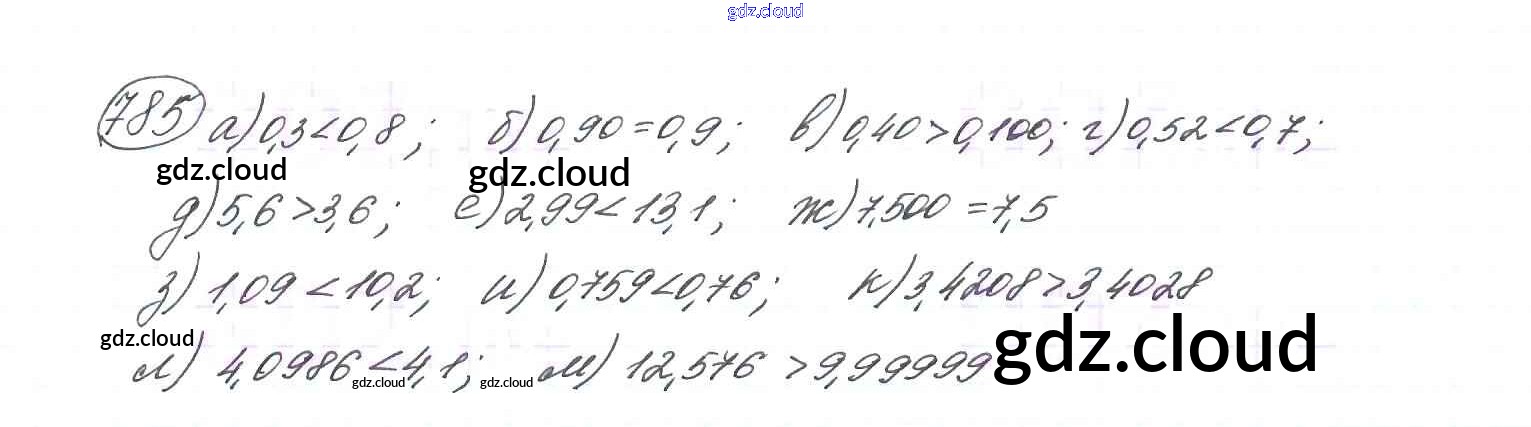 gdz.cloud
785 а) 0,3<0,8; б) 0,90=0,9; в) 0,40>0,100; г) 0,52<0,7;
gdz.cloud gdz.cloud
д) 5,6>3,6; е) 2,99<13,1; ж) 7,500=7,5
з) 1,09<10,2; и) 0,759<0,76; к) 3,4208>3,4028
gdz.cloud gdz.cloud
л) 4,0986<4,1; м) 12,576>9,99999
gdz.cloud gdz.cloud